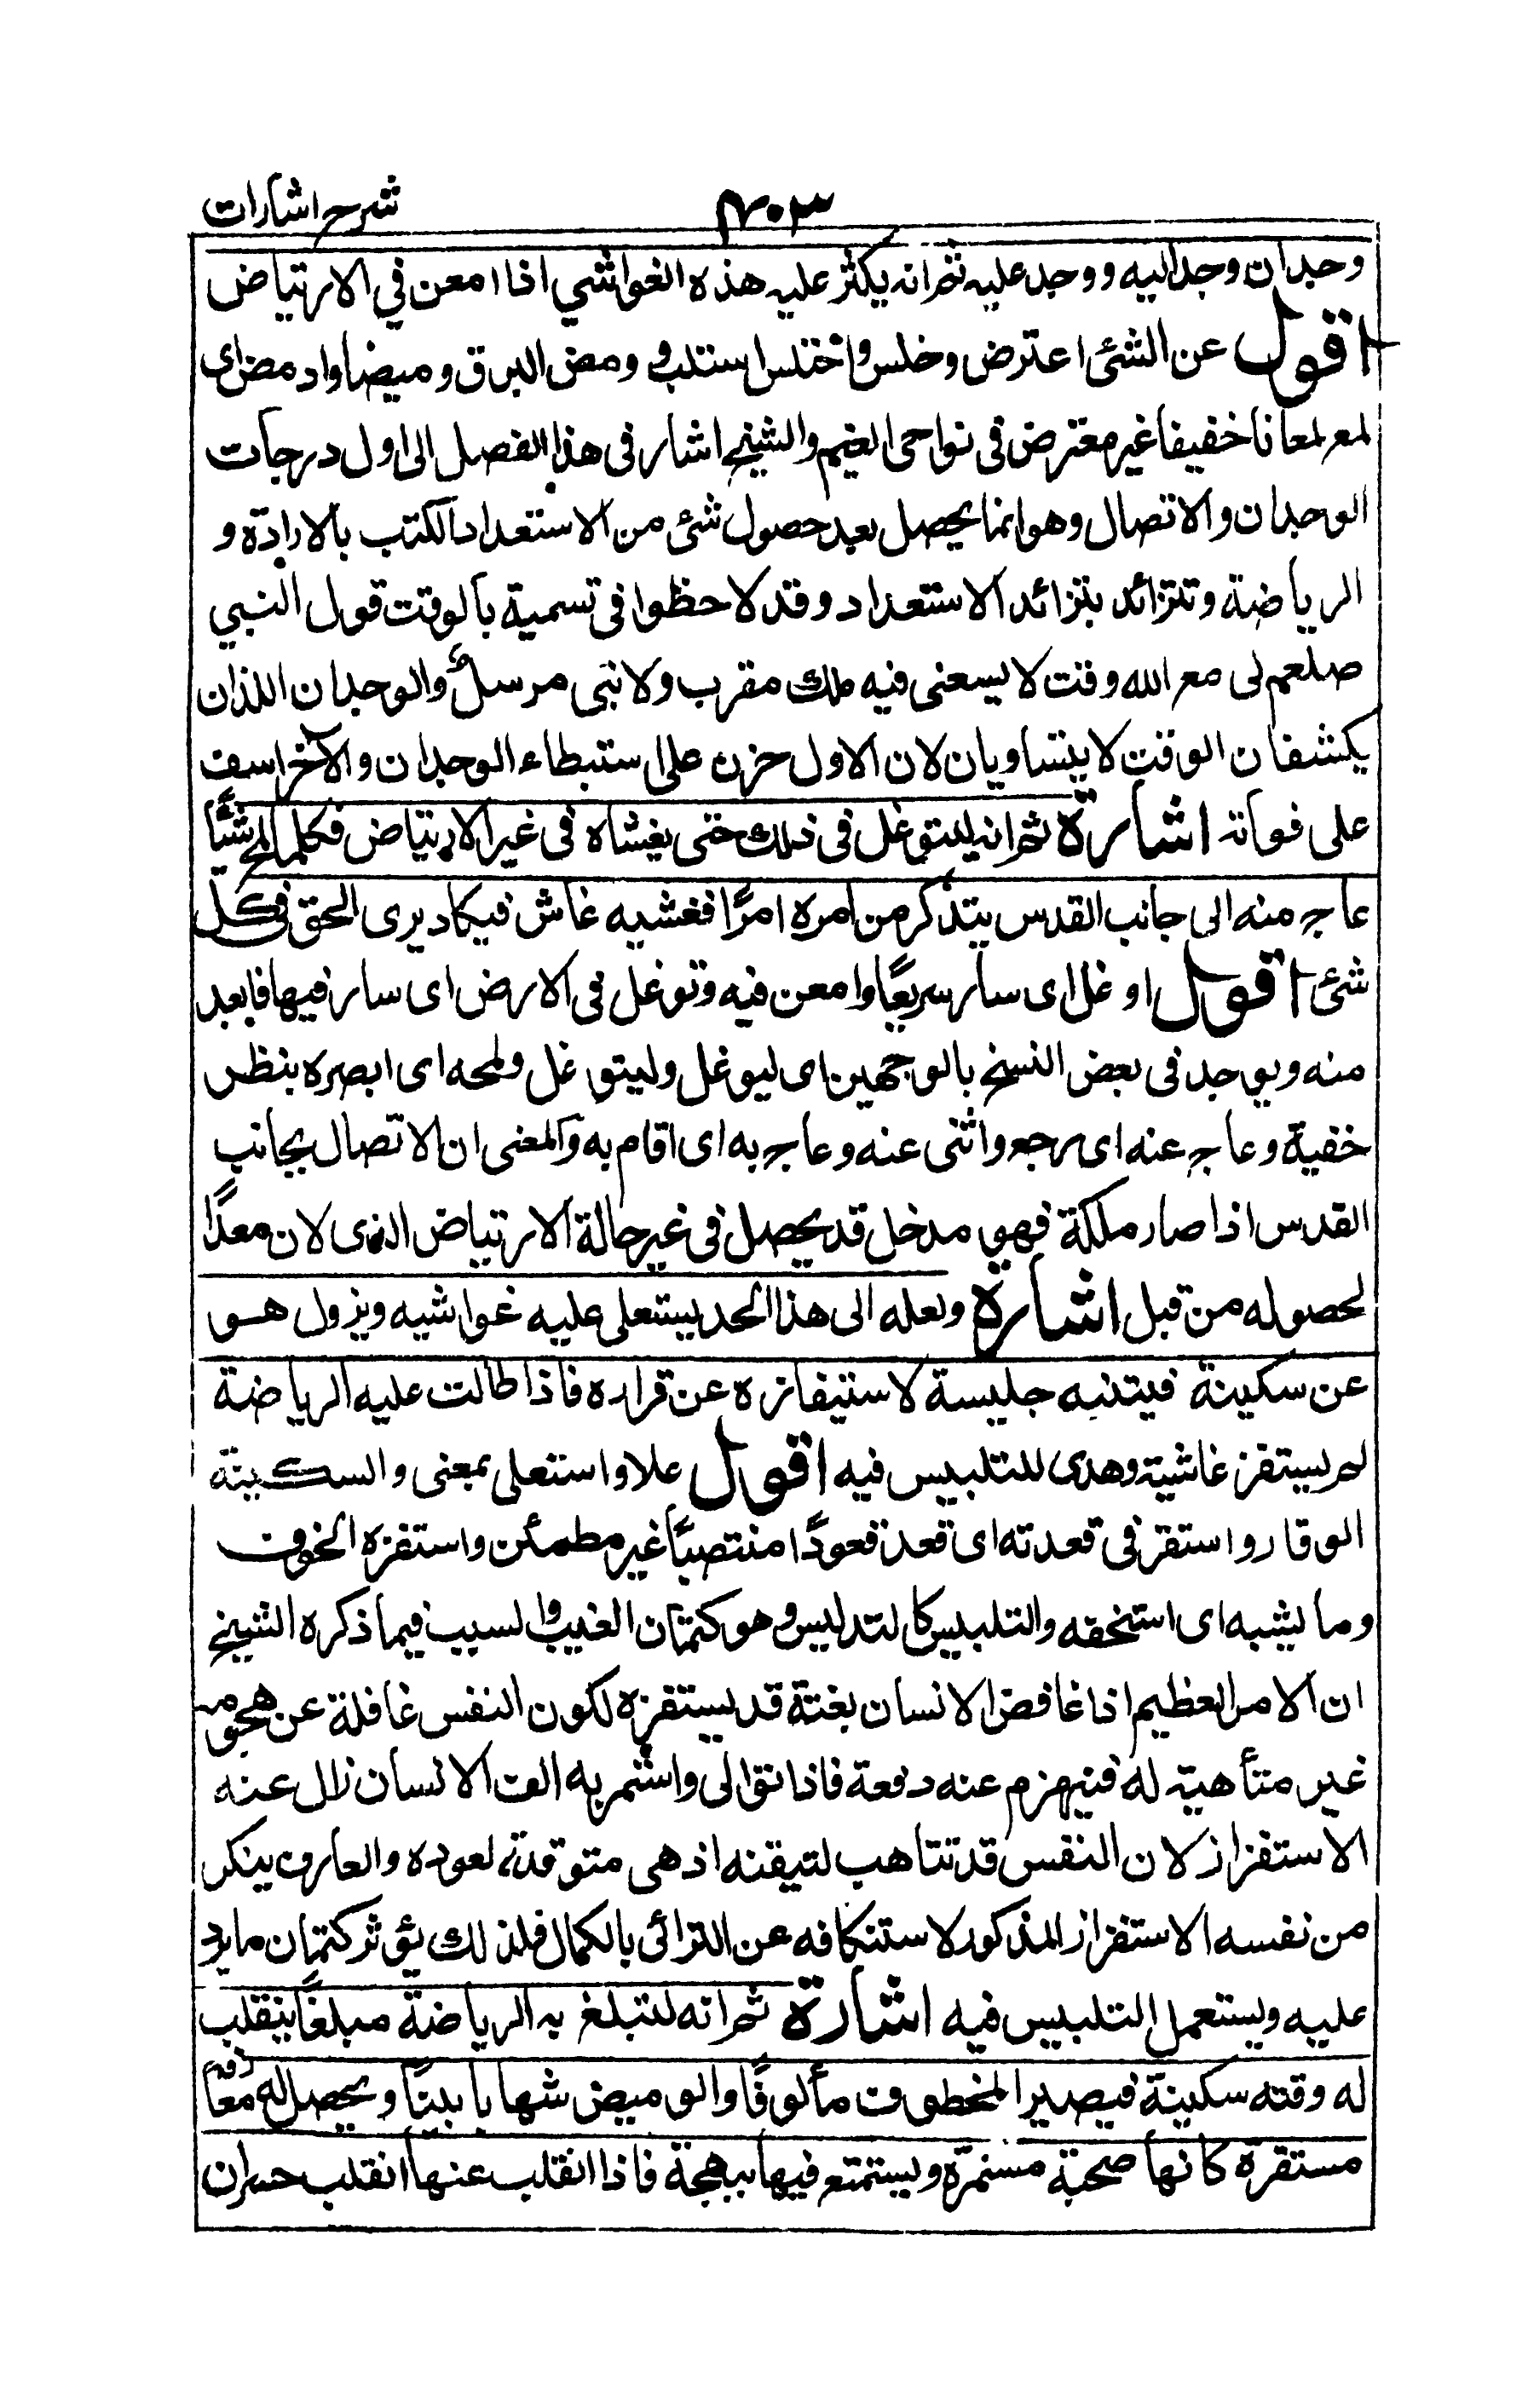 شرح اشارات
۳۰۳
وجدان وجد اليه ووجد عليه ثم انه يكثر عليه هذه الغواشي اذا امعن في الارتياض
اقول عن الشئ اعترض وخلس واختلس استلب وومض البرق وميضا واومض اى
لمع لمعانا خفيفا غير معترض فى نواحى الغيم والشيخ اشار فى هذا الفصل الى اول درجات
الوجدان والاتصال وهو انما يحصل بعد حصول شئ من الاستعداد المكتسب بالارادة و
الرياضة وتتزائد بتزائد الاستعداد وقد لاحظوا فى تسمية بالوقت قول النبي
صلعم لى مع الله وقت لا يسعنى فيه ملك مقرب ولا نبى مرسل والوجدان اللذان
يكشفان الوقت لا يتساويان لان الاول حزن على استبطاء الوجدان والآخر اسف
على فواته اشارة ثم انه ليتوغل فى ذلك حتى يغشاه فى غير الارتياض فكلما لمح شيًا
عاج منه الى جانب القدس يتذكر من امره امرًا فغشيه غاش فيكاد يرى الحق فى كل
شئ اقول اوغل اى سار سريعًا وامعن فيه وتوغل فى الارض اى سار فيها فابعد
منه ويوجد فى بعض النسخ بالوجهين اى ليوغل وليتوغل ولمحه اى ابصره بنظر
خفية وعاج عنه اى رجع واثنى عنه وعاج به اى اقام به والمعنى ان الاتصال بجانب
القدس اذا صار ملكة فهو مدخل قد يحصل فى غير حالة الارتياض الذى لان معدًا
لحصوله من قبل اشارة ولعله الى هذا الحد يستعلى عليه غواشيه ويزول هو
عن سكينة فيتنبه جليسة لاستيفازه عن قراره فاذا طالت عليه الرياضة
لم يستفز غاشيته وهدى للتلبيس فيه اقول علا واستعلى بمعنى والسكينة
الوقار واستقز فى قعدته اى قعد قعودًا منتصبًا غير مطمئن واستفزه الخوف
وما يشبه اى استخفه والتلبيس كالتدليس وهو كتمان العيب والسبب فيما ذكره الشيخ
ان الامر العظيم اذا غافص الانسان بغتة قد يستفزه لكون النفس غافلة عن هجومه
غير متأهبة له فينهزم عنه دفعة فاذا توالى واستمر به الف الانسان زال عنه
الاستفزاز لان النفس قد تتاهب لتيقنه اذ هى متوقدة لعوده والعارف ينكر
من نفسه الاستفزاز المذكور لاستنكافه عن الترائى بالكمال فلذلك يؤثر كتمان ما يرد
عليه ويستعمل التلبيس فيه اشارة ثم انه لتبلغ به الرياضة مبلغًا ينقلب
له وقته سكينة فيصير المخطوف مألوفًا والوميض شهابا بينًا ويحصل له معارفة
مستقرة كانها صحبة مستمرة ويستمتع فيها ببهجة فاذا انقلب عنها انقلب حسران